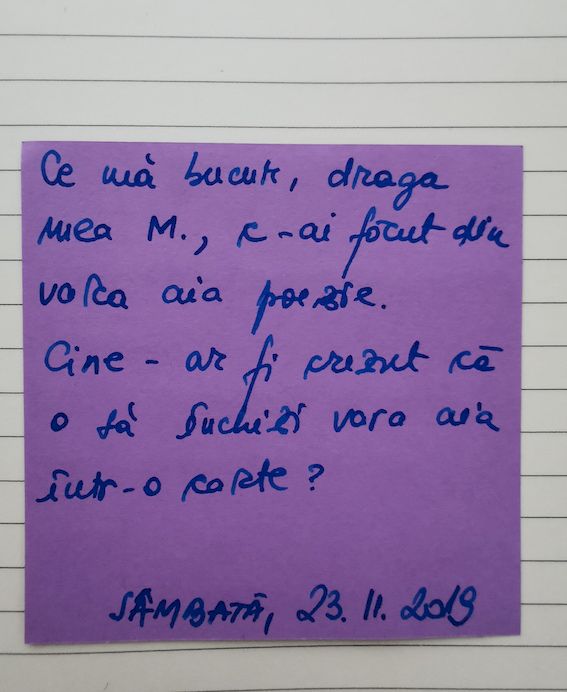 Ce mă bucur, draga
mea M., c-ai făcut din
vara aia poezie.
Cine-ar fi crezut că
o să închizi vara aia
într-o carte?
SÂMBĂTĂ, 23.11.2019